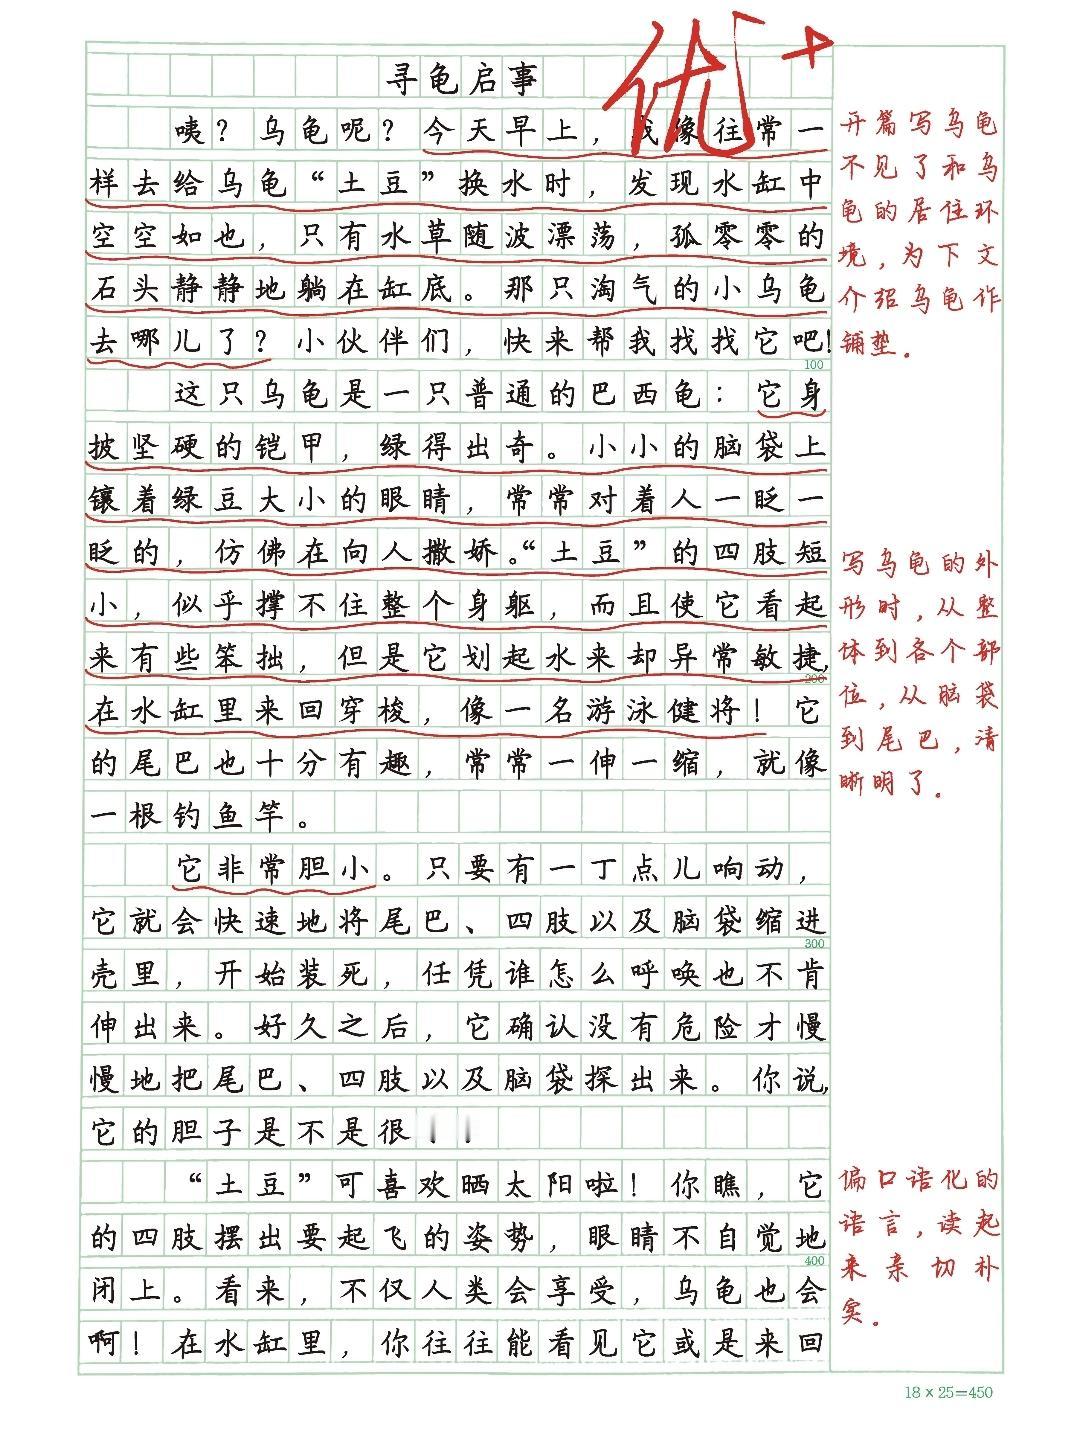 优+
寻龟启事
咦？乌龟呢？今天早上，我像往常一
样去给乌龟“土豆”换水时，发现水缸中
空空如也，只有水草随波漂荡，孤零零的
石头静静地躺在缸底。那只淘气的小乌龟
去哪儿了？小伙伴们，快来帮我找找它吧！
100
这只乌龟是一只普通的巴西龟：它身
披坚硬的铠甲，绿得出奇。小小的脑袋上
镶着绿豆大小的眼睛，常常对着人一眨一
眨的，仿佛在向人撒娇。“土豆”的四肢短
小，似乎撑不住整个身躯，而且使它看起
来有些笨拙，但是它划起水来却异常敏捷，
200
在水缸里来回穿梭，像一名游泳健将！它
的尾巴也十分有趣，常常一伸一缩，就像
一根钓鱼竿。
它非常胆小。只要有一丁点儿响动，
它就会快速地将尾巴、四肢以及脑袋缩进
300
壳里，开始装死，任凭谁怎么呼唤也不肯
伸出来。好久之后，它确认没有危险才慢
慢地把尾巴、四肢以及脑袋探出来。你说，
它的胆子是不是很
“土豆”可喜欢晒太阳啦！你瞧，它
的四肢摆出要起飞的姿势，眼睛不自觉地
400
闭上。看来，不仅人类会享受，乌龟也会
啊！在水缸里，你往往能看见它或是来回
开篇写乌龟
不见了和乌
龟的居住环
境，为下文
介绍乌龟作
铺垫。
写乌龟的外
形时，从整
体到各个部
位，从脑袋
到尾巴，清
晰明了。
偏口语化的
语言，读起
来亲切朴
实。
18×25=450